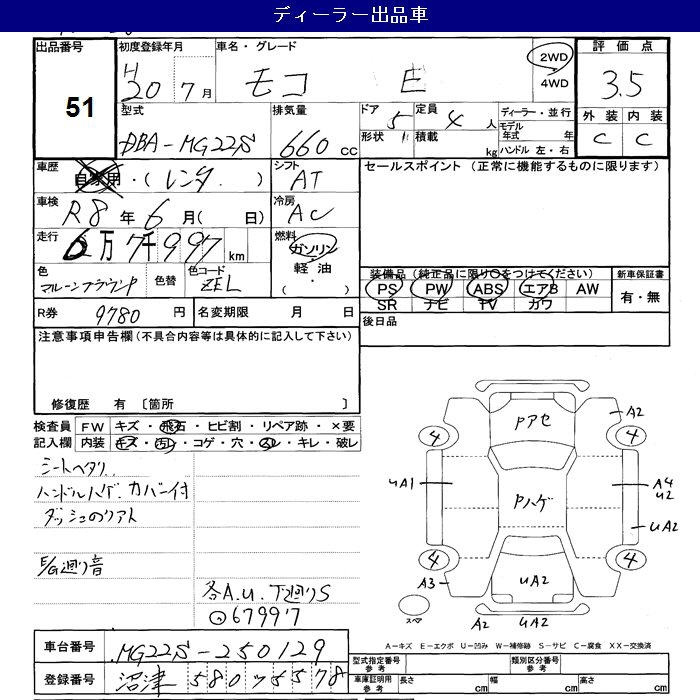 ディーラー出品車
出品番号 51
初度登録年月 H20年7月
車名・グレード モコ E
2WD 4WD
評価点 3.5
外装 C 内装 C
型式 DBA-MG22S
排気量 660cc
ドア 5 定員 4人
形状 積載 kg
ディーラー・並行
モデル年式 年
ハンドル 左・右
車歴 自家用・(レンタ)
シフト AT
セールスポイント(正常に機能するものに限ります)
車検 R8年6月(日)
冷房 AC
走行 6万7千997km
燃料 ガソリン 軽油
色 マルーンブラウンP 色替 色コード ZEL
装備品(純正品に限り○をつけてください)
PS PW ABS エアB AW
SR ナビ TV カワ
新車保証書 有・無
R券 9780円 名変期限 月 日
後日品
注意事項申告欄(不具合内容等は具体的に記入して下さい)
修復歴 有〔箇所 〕
検査員記入欄 FW キズ・飛石・ヒビ割・リペア跡・×要
内装 キズ・汚レ・コゲ・穴・スレ・キレ・破レ
シートヘタリ
ハンドルハゲ.カバー付
ダッシュのリアト
E/G廻り音
各A.U.下廻りS
67997
Pアセ
Pハゲ
UA2
A2
4 4
UA1
A4
U2
UA2
4 4
A3
スペア
A2 UA2
A-キズ E-エクボ U-凹み W-補修跡 S-サビ C-腐食 XX-交換済
車台番号 MG22S-250129
登録番号 沼津 580 75578
型式指定番号 参考 類別区分番号 参考
車庫証明用 参考 長さ cm 幅 cm 高さ cm